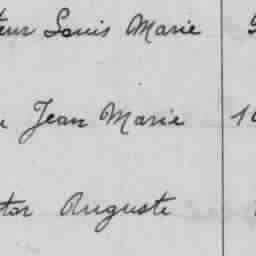 teur Louis Marie
Jean Marie 1
tor Auguste